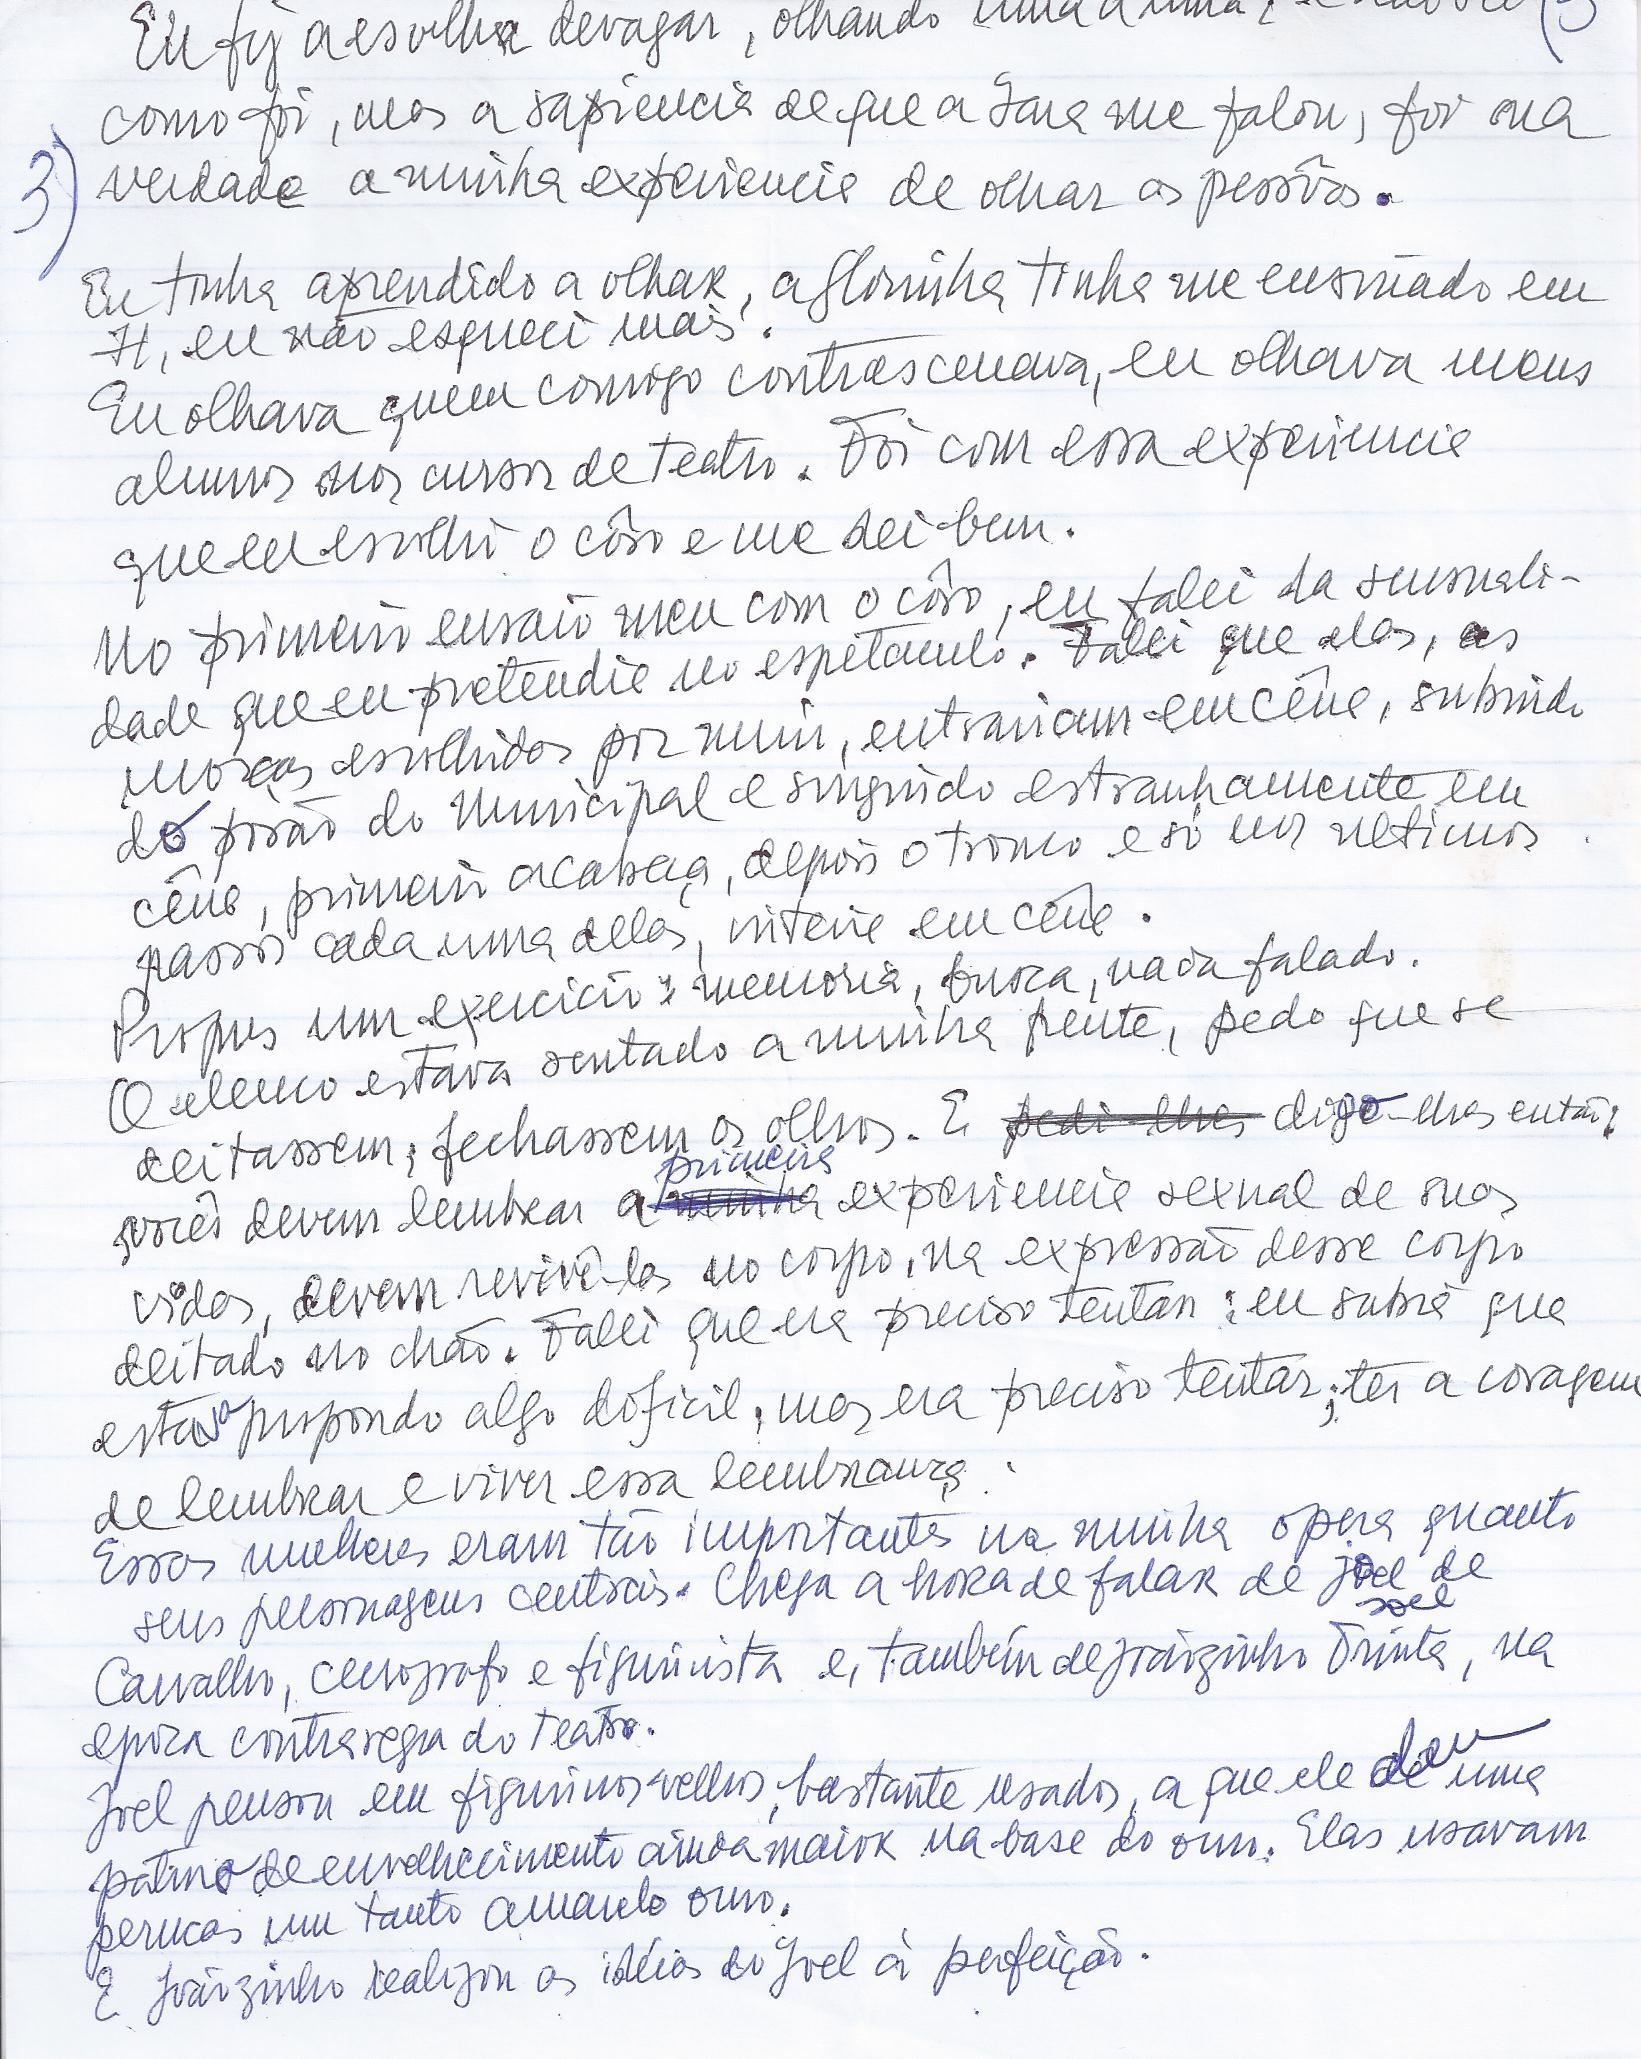 Eu fiz a escolha devagar, olhando uma a uma, e não sei
3)
como foi, mas a sapiencia de que a Iara me falou, foi na
3)
verdade a minha experiencia de olhar as pessôas.
Eu tinha aprendido a olhar, a Glorinha tinha me ensinado em
71, eu não esqueci mais.
Eu olhava quem comigo contrascenava, eu olhava meus
alunos nos cursos de teatro. Foi com essa experiencia
que eu escolhi o côro e me dei bem.
No primeiro ensaio meu com o côro, eu falei da sensuali-
dade que eu pretendia no espetaculo. Falei que elas, as
moças escolhidas por mim, entrariam em cêna, subindo
do porão do Municipal e surgindo estranhamente em
cêna, primeiro a cabeça, depois o tronco e só nos ultimos
passos cada uma delas, inteira em cêna.
Propus um exercicio: memoria, busca, nada falado.
O elenco estava sentado a minha frente, pedo que se
deitassem, fechassem os olhos. E pedi-lhes digo-lhes então:
primeira
vocês devem lembrar a minha experiencia sexual de suas
vidas, devem revivê-las no corpo, na expressão desse corpo
deitado no chão. Falei que era preciso tentar: eu sabia que
estava propondo algo dificil, mas era preciso tentar; ter a coragem
de lembrar e viver essa lembrança.
Essas mulheres eram tão importantes na minha opera quanto
seus personagens centrais. Chega a hora de falar de Joel de
Joel
Carvalho, cenografo e figurinista e, também de Joãozinho Trinta, na
epoca contraregra do teatro.
Joel pensou em figurinos velhos, bastante usados, a que ele deu uma
patina de envelhecimento ainda maior na base do ouro. Elas usavam
perucas um tanto amarelo ouro.
E Joãozinho realizou as idéias do Joel à perfeição.